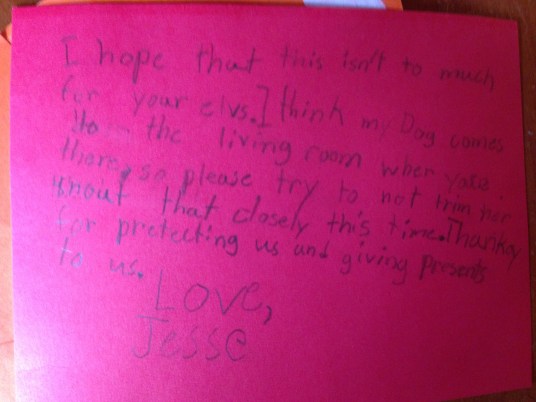 I hope that this isn't to much
for your elvs. I think my Dog comes
to the living room wher
there, so please try to not trim her
that closely this time. Thankyou
for pretecting us and giving presents
to us.
Love,
Jesse